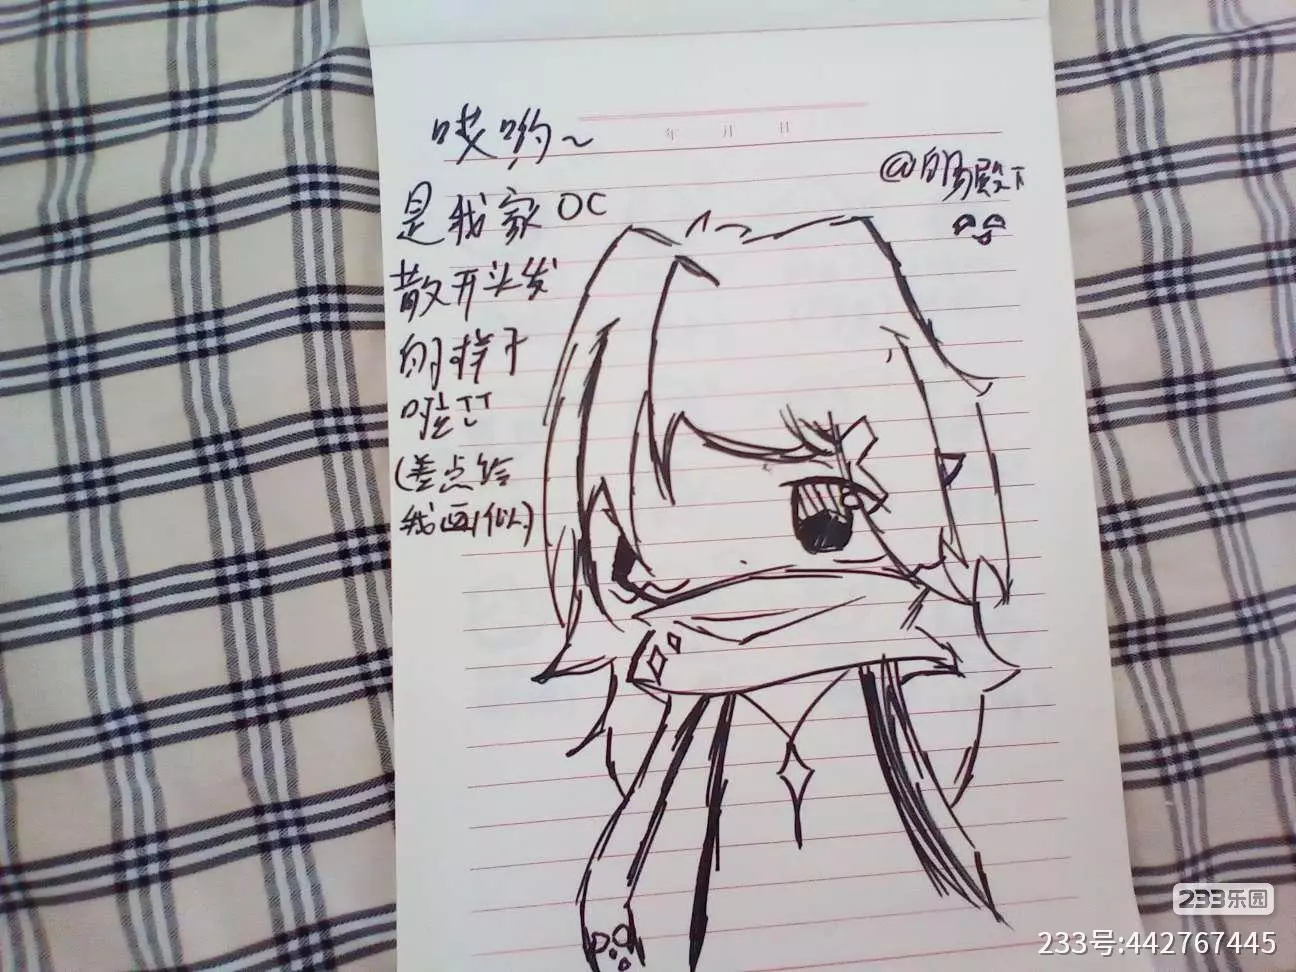 年 月 日
哎哟~
@的殿下
是我家OC
散开头发
的样子
哇
(差点给
我画似)
233乐园
233号:442767445